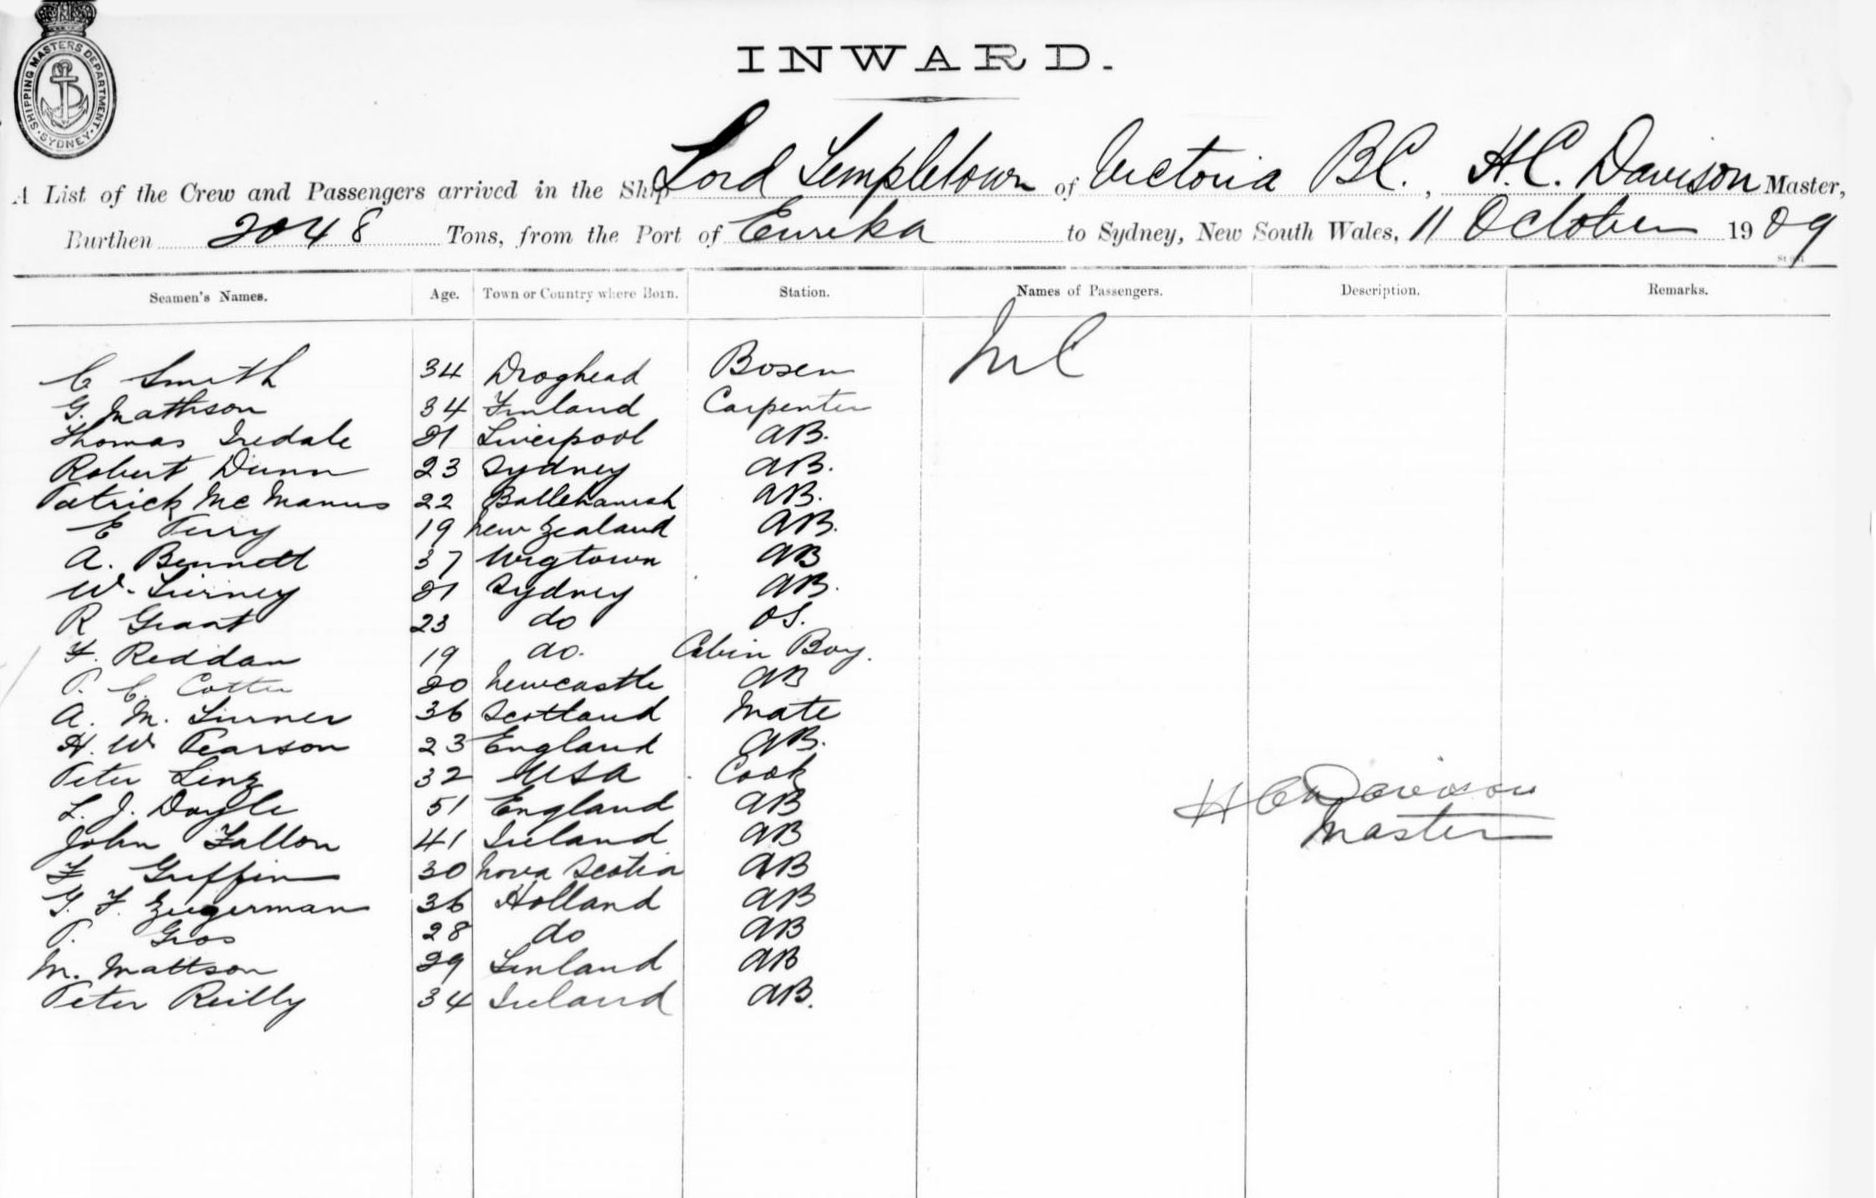 SHIPPING MASTERS DEPARTMENT · SYDNEY ·
INWARD.
A List of the Crew and Passengers arrived in the Ship Lord Templetown of Victoria B.C., H.C. Davison Master,
Burthen 2048 Tons, from the Port of Eureka to Sydney, New South Wales, 11 October 1909
Seamen's Names. Age. Town or Country where Born. Station. Names of Passengers. Description. Remarks.
C Smith 34 Droghead Bosen
G. Mathson 34 Finland Carpenter
Thomas Iredale 21 Liverpool AB.
Robert Dunn 23 Sydney AB.
Patrick McManus 22 AB.
E Perry 19 New Zealand AB.
A. Bennett 37 Wigtown AB
W. Tierney 21 Sydney AB.
R Grant 23 do OS.
F. Reddan 19 do. Cabin Boy.
P. C. Cotter 20 Newcastle AB
A. M. Turner 36 Scotland Mate
H. W Pearson 23 England AB.
Peter Lenz 32 USA Cook
L. J. Doyle 51 England AB
John Fallon 41 Ireland AB
F Griffin 30 Nova Scotia AB
G. F. Zeegerman 36 Holland AB
P. Gros 28 do AB
M. Mattson 29 Finland AB
Peter Reilly 34 Ireland AB.
H C Davison
Master